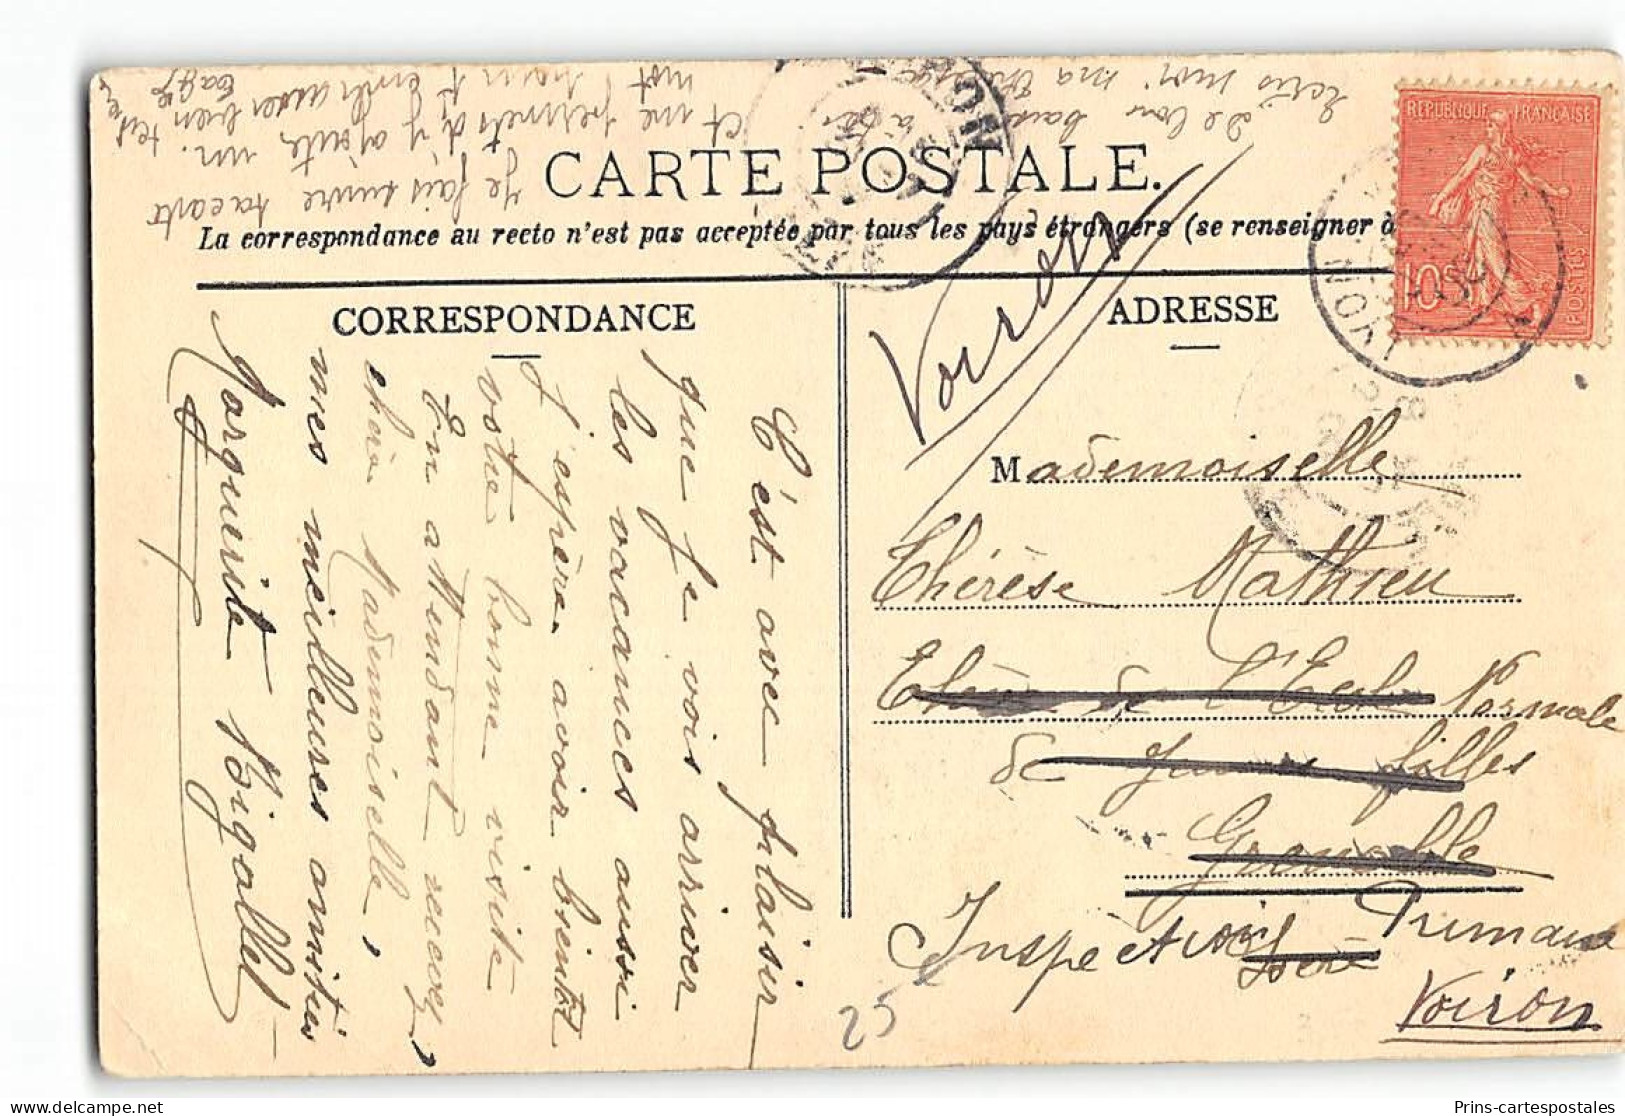 Je fais suivre ta carte
et me permets d'y ajouter un
mot
t'embrasser bien
CARTE POSTALE.
La correspondance au recto n'est pas acceptée par tous les pays étrangers (se renseigner à
CORRESPONDANCE
ADRESSE
RÉPUBLIQUE FRANÇAISE
10c
POSTES
C'est avec plaisir
que je vois arriver
les vacances aussi
j'espère avoir bientôt
votre bonne visite
En attendant recevez,
chère Mademoiselle,
mes meilleures amitiés
Marguerite Bigallet
Voiron
Mademoiselle
Thérèse Mathieu
Elève de l'Ecole Normale
de jeunes filles
Grenoble
Isère
Inspection Primaire
Voiron
25
Prins-cartespostales